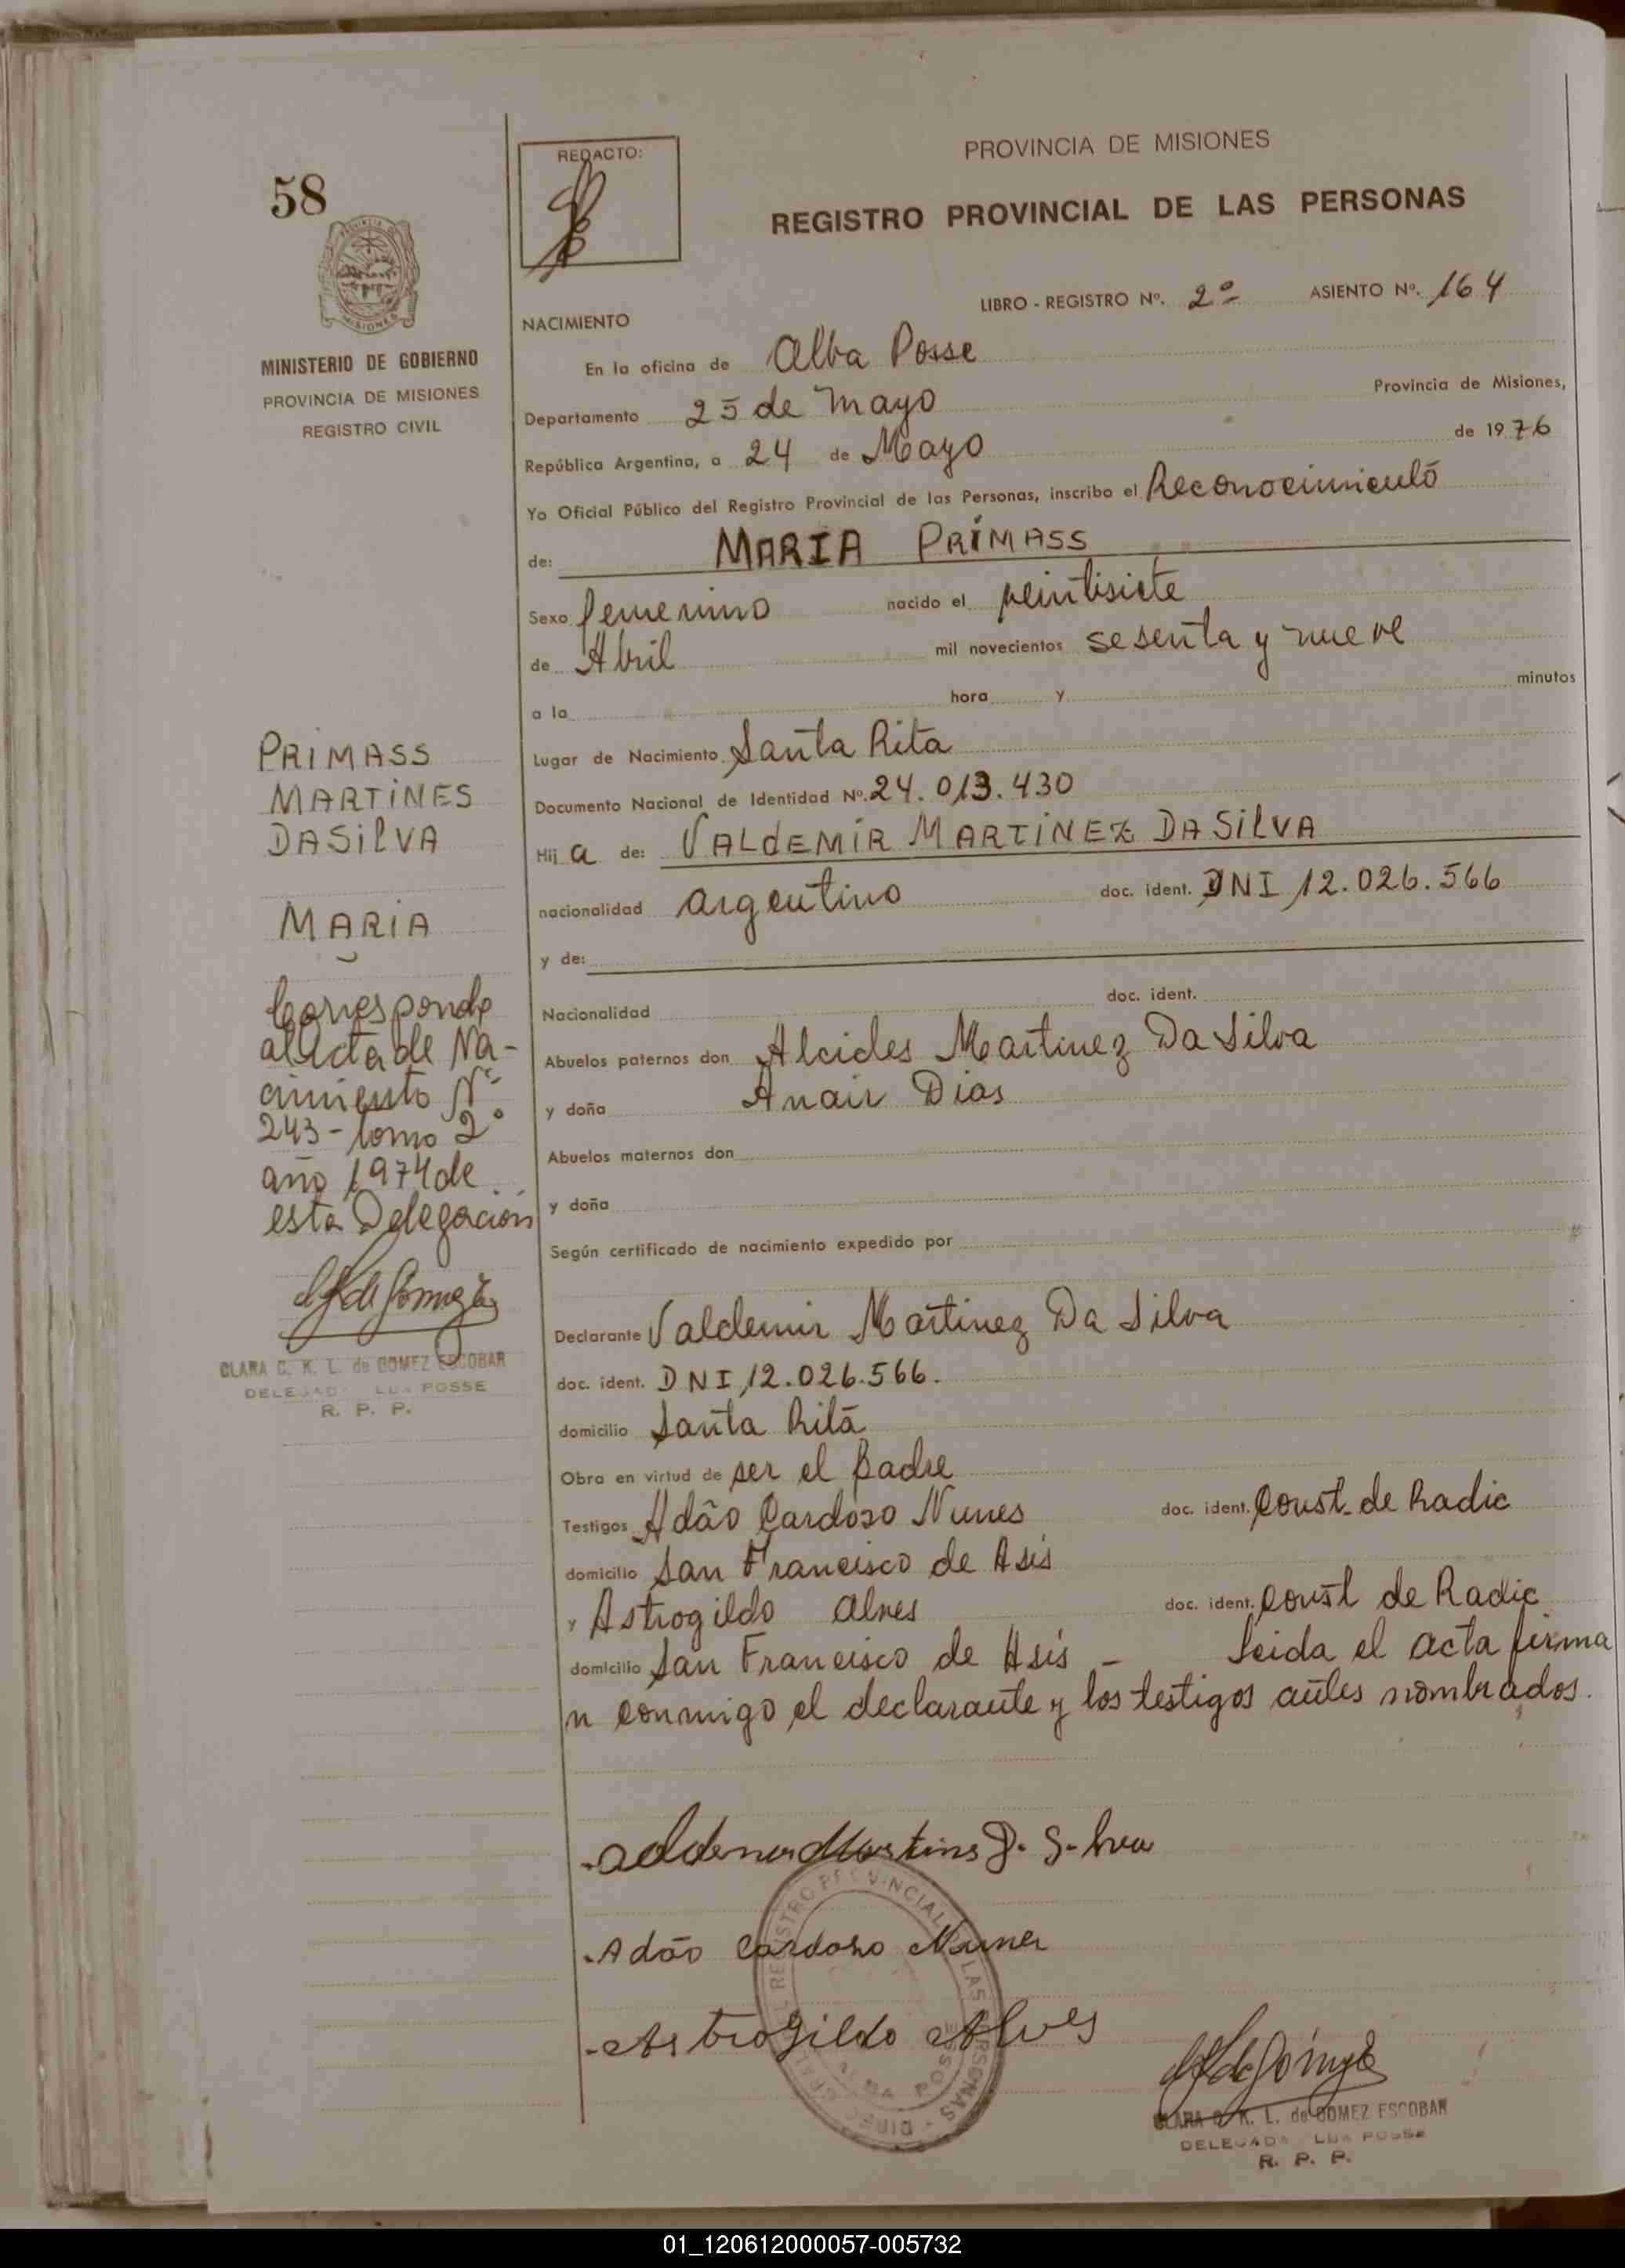 58
REDACTO:
PROVINCIA DE MISIONES
REGISTRO PROVINCIAL DE LAS PERSONAS
MISIONES
MINISTERIO DE GOBIERNO
PROVINCIA DE MISIONES
REGISTRO CIVIL
LIBRO - REGISTRO Nº. 2º ASIENTO Nº. 164
NACIMIENTO
En la oficina de Alba Posse
Departamento 25 de Mayo Provincia de Misiones,
República Argentina, a 24 de Mayo de 1976
Yo Oficial Público del Registro Provincial de las Personas, inscribo el Reconocimiento
de: MARIA PRIMASS
Sexo femenino nacido el veintisiete
de Abril mil novecientos sesenta y nueve
a la hora y minutos
Lugar de Nacimiento Santa Rita
Documento Nacional de Identidad Nº. 24.013.430
Hij a de: VALDEMIR MARTINEZ DA SILVA
nacionalidad argentino doc. ident. DNI 12.026.566
y de:
Nacionalidad doc. ident.
Abuelos paternos don Alcides Martinez Da Silva
y doña Anair Dias
Abuelos maternos don
y doña
Según certificado de nacimiento expedido por
Declarante Valdemir Martinez Da Silva
doc. ident. DNI 12.026.566.
domicilio Santa Rita
Obra en virtud de ser el padre
Testigos Adão Cardoso Nunes doc. ident. Const. de Radic
domicilio San Francisco de Asis
y Astrogildo Alves doc. ident. Const de Radic
domicilio San Francisco de Asis - Leida el acta firma
n conmigo el declarante y los testigos antes nombrados.
PRIMASS
MARTINES
DASILVA
MARIA
Corresponde
al Acta de Na-
cimiento Nº
243 - tomo 2º
año 1974 de
esta Delegación
CLARA C. K. L. de GOMEZ ESCOBAR
DELEGADA ALBA POSSE
R. P. P.
Adão Cardoso Nunes
Astrogildo Alves
REGISTRO PROVINCIAL LAS PERSONAS - DIREC. GRAL.
ALBA POSSE
CLARA C. K. L. de GOMEZ ESCOBAR
DELEGADA ALBA POSSE
R. P. P.
01_120612000057-005732